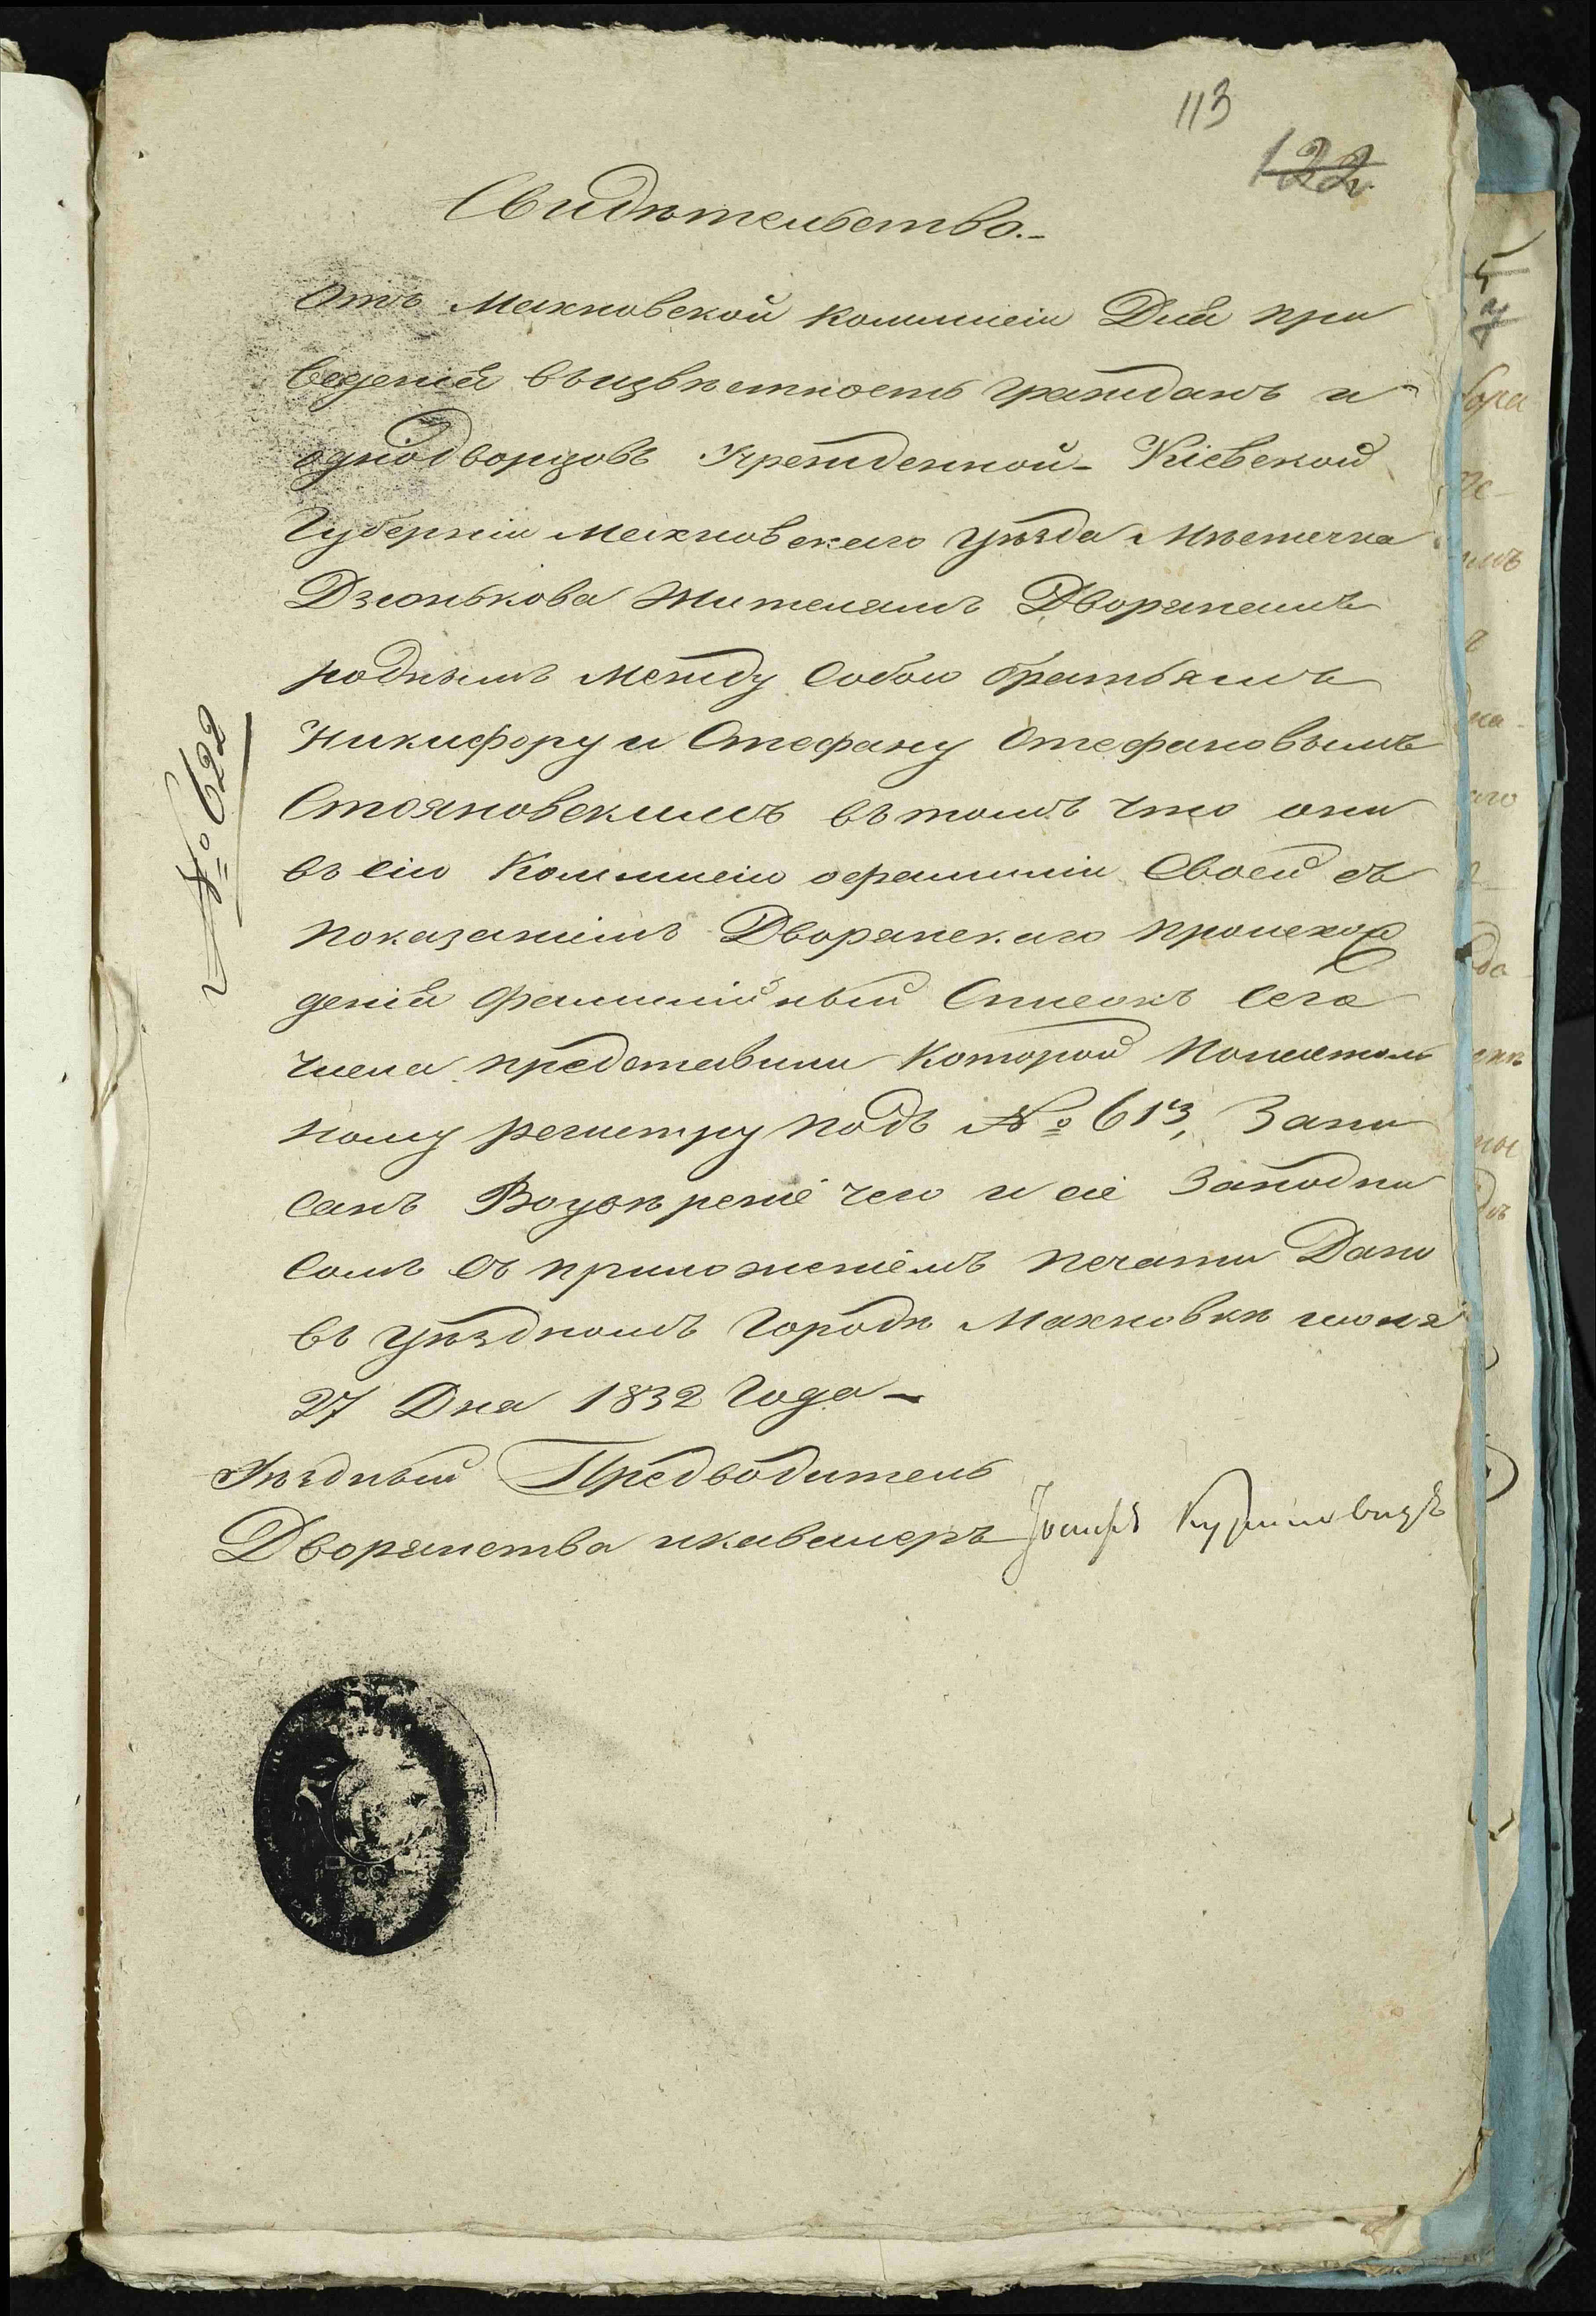 113
122
Свидѣтельство.-
Отъ Махновской Коммисіи Для при
веденія въизвѣстность гражданъ и
однодворцовъ Учрежденной- Кіевской
Губерніи Махновскаго уѣзда Мѣстечка
Дзюнькова Жителямъ Дворянамъ
роднымъ Между Собою братьямъ
Никифору и Стефану Стефановымъ
Стояновскимъ въ томъ что они
въ сію Коммисію офамиліи Своей съ
показаніемъ Дворянскаго происхож
денія фамилійный Списокъ Сего
числа представили Которой
ному регистру подъ № 613, Запи
санъ Воувѣреніе чего и сіе Заподпи
сомъ Съ приложеніемъ печати Дано
въ уѣздномъ Городѣ Махновкѣ июля
27 Дня 1832 Года-
Уѣздный Предводитель
Дворянства икавалеръ Іосифъ
№ 622